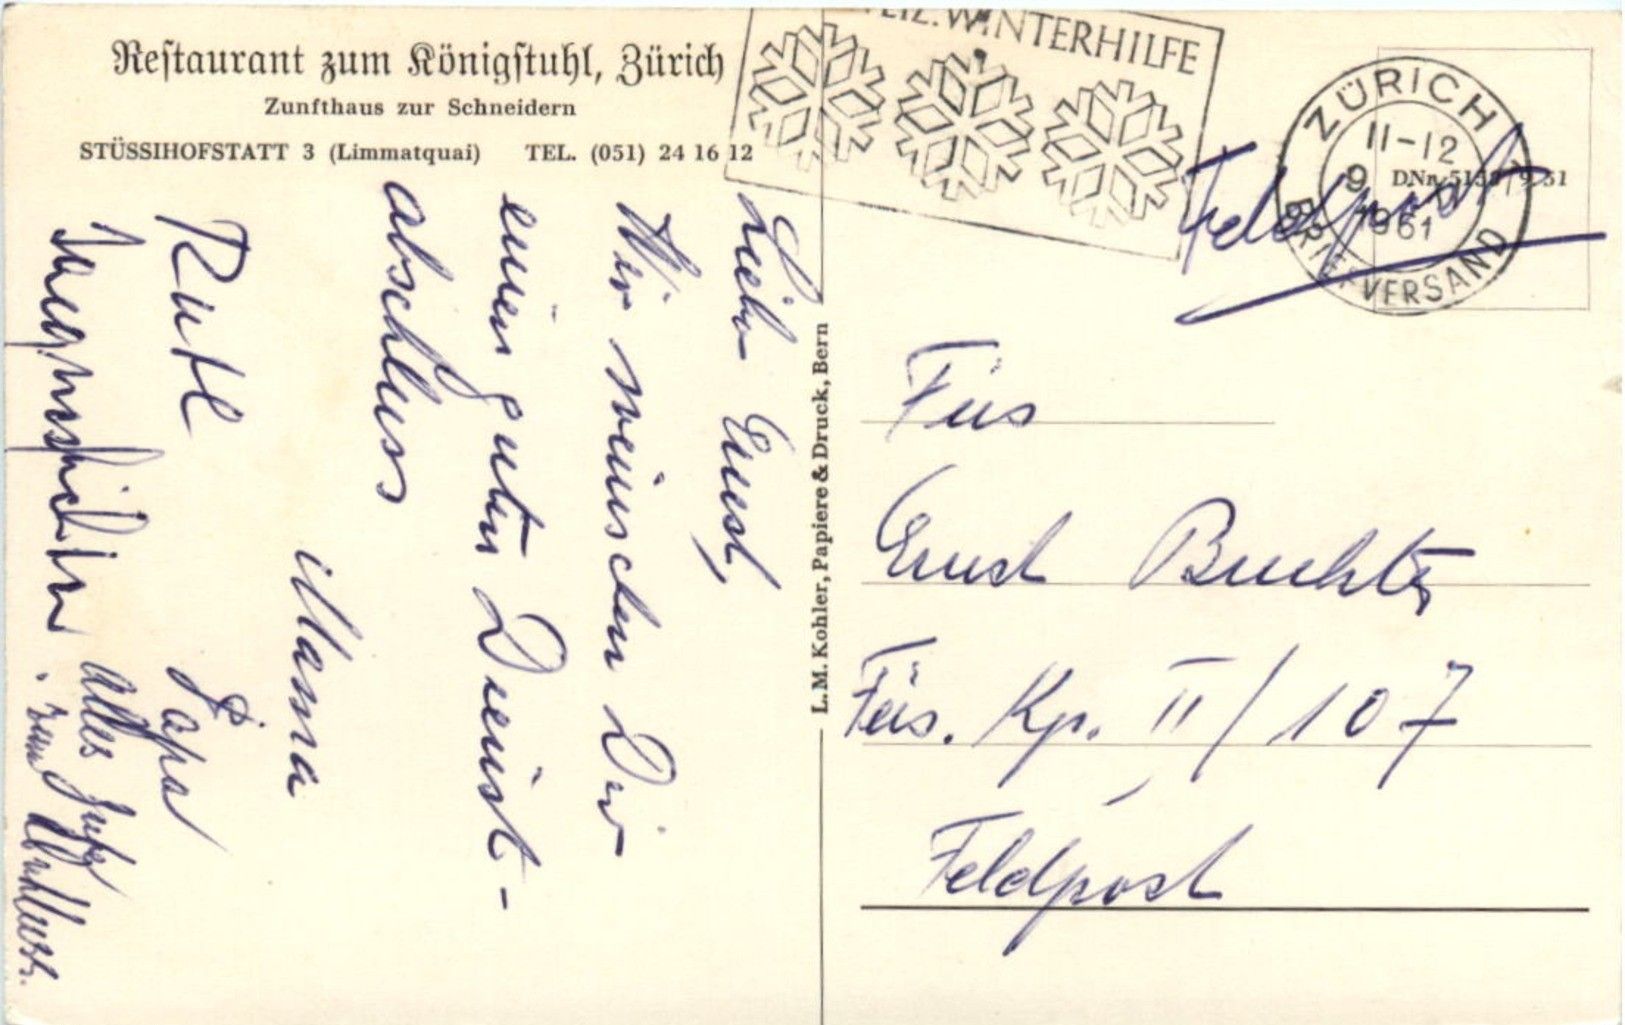 Restaurant zum Königstuhl, Zürich
Zunfthaus zur Schneidern
STÜSSIHOFSTATT 3 (Limmatquai) TEL. (051) 24 16 12
WINTERHILFE
ZÜRICH
11-12
9
1961
BRIEFVERSAND
DNr. 51
Feldpost
Lieber Ernst,
Wir wünschen Dir
einen guten Dienst-
abschluss
Mama
Papa
Ruth
Alles Gute
zum Abschluss.
L. M. Kohler, Papiere & Druck, Bern
Füs
Ernst Buchter
Füs. Kp. II/107
Feldpost